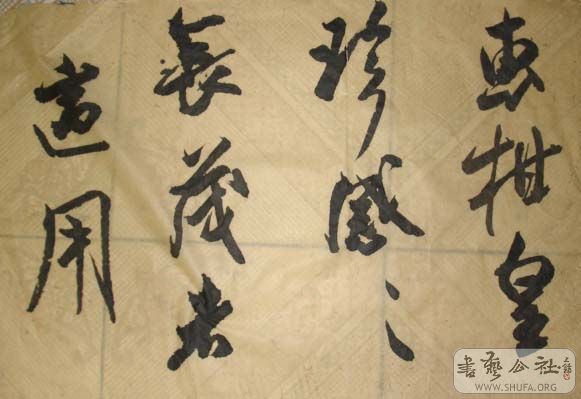 惠柑皇
珍感々
長茂者
適用
書藝公社
WWW.SHUFA.ORG